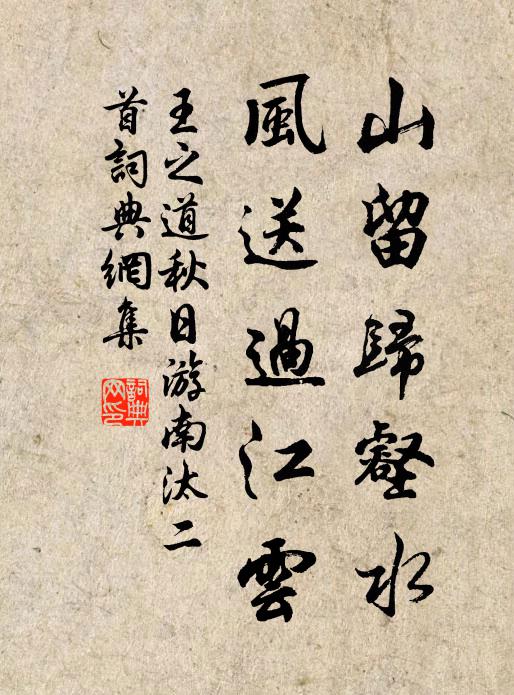 山留歸壑水
風送過江雲
王之道秋日游南汰二
首詞典網集
詞典網印